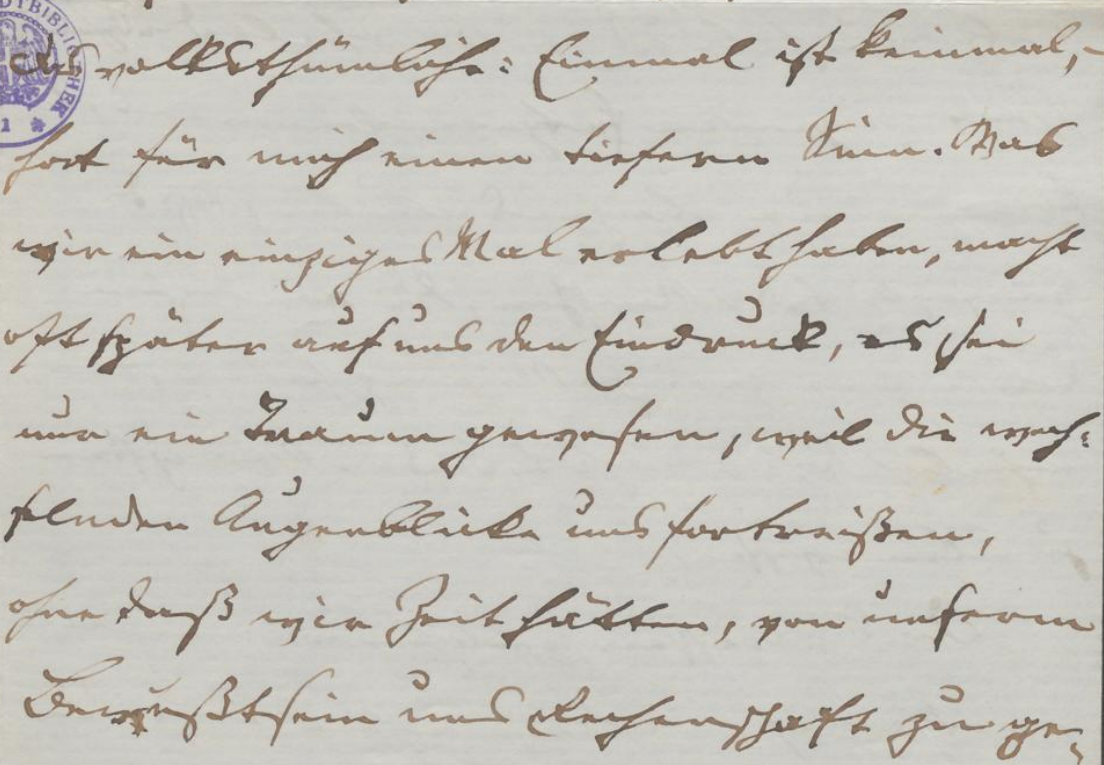 das volksthümliche: Einmal ist keinmal, –
hat für mich einen tiefern Sinn. Was
wir ein einziges Mal erlebt haben, macht
oft später auf uns den Eindruck, es sei
nur ein Traum gewesen, weil die wech:
selnden Augenblicke uns fortreißen,
ohne daß wir Zeit hätten, von unserm
Bewußtsein uns Rechenschaft zu ge: